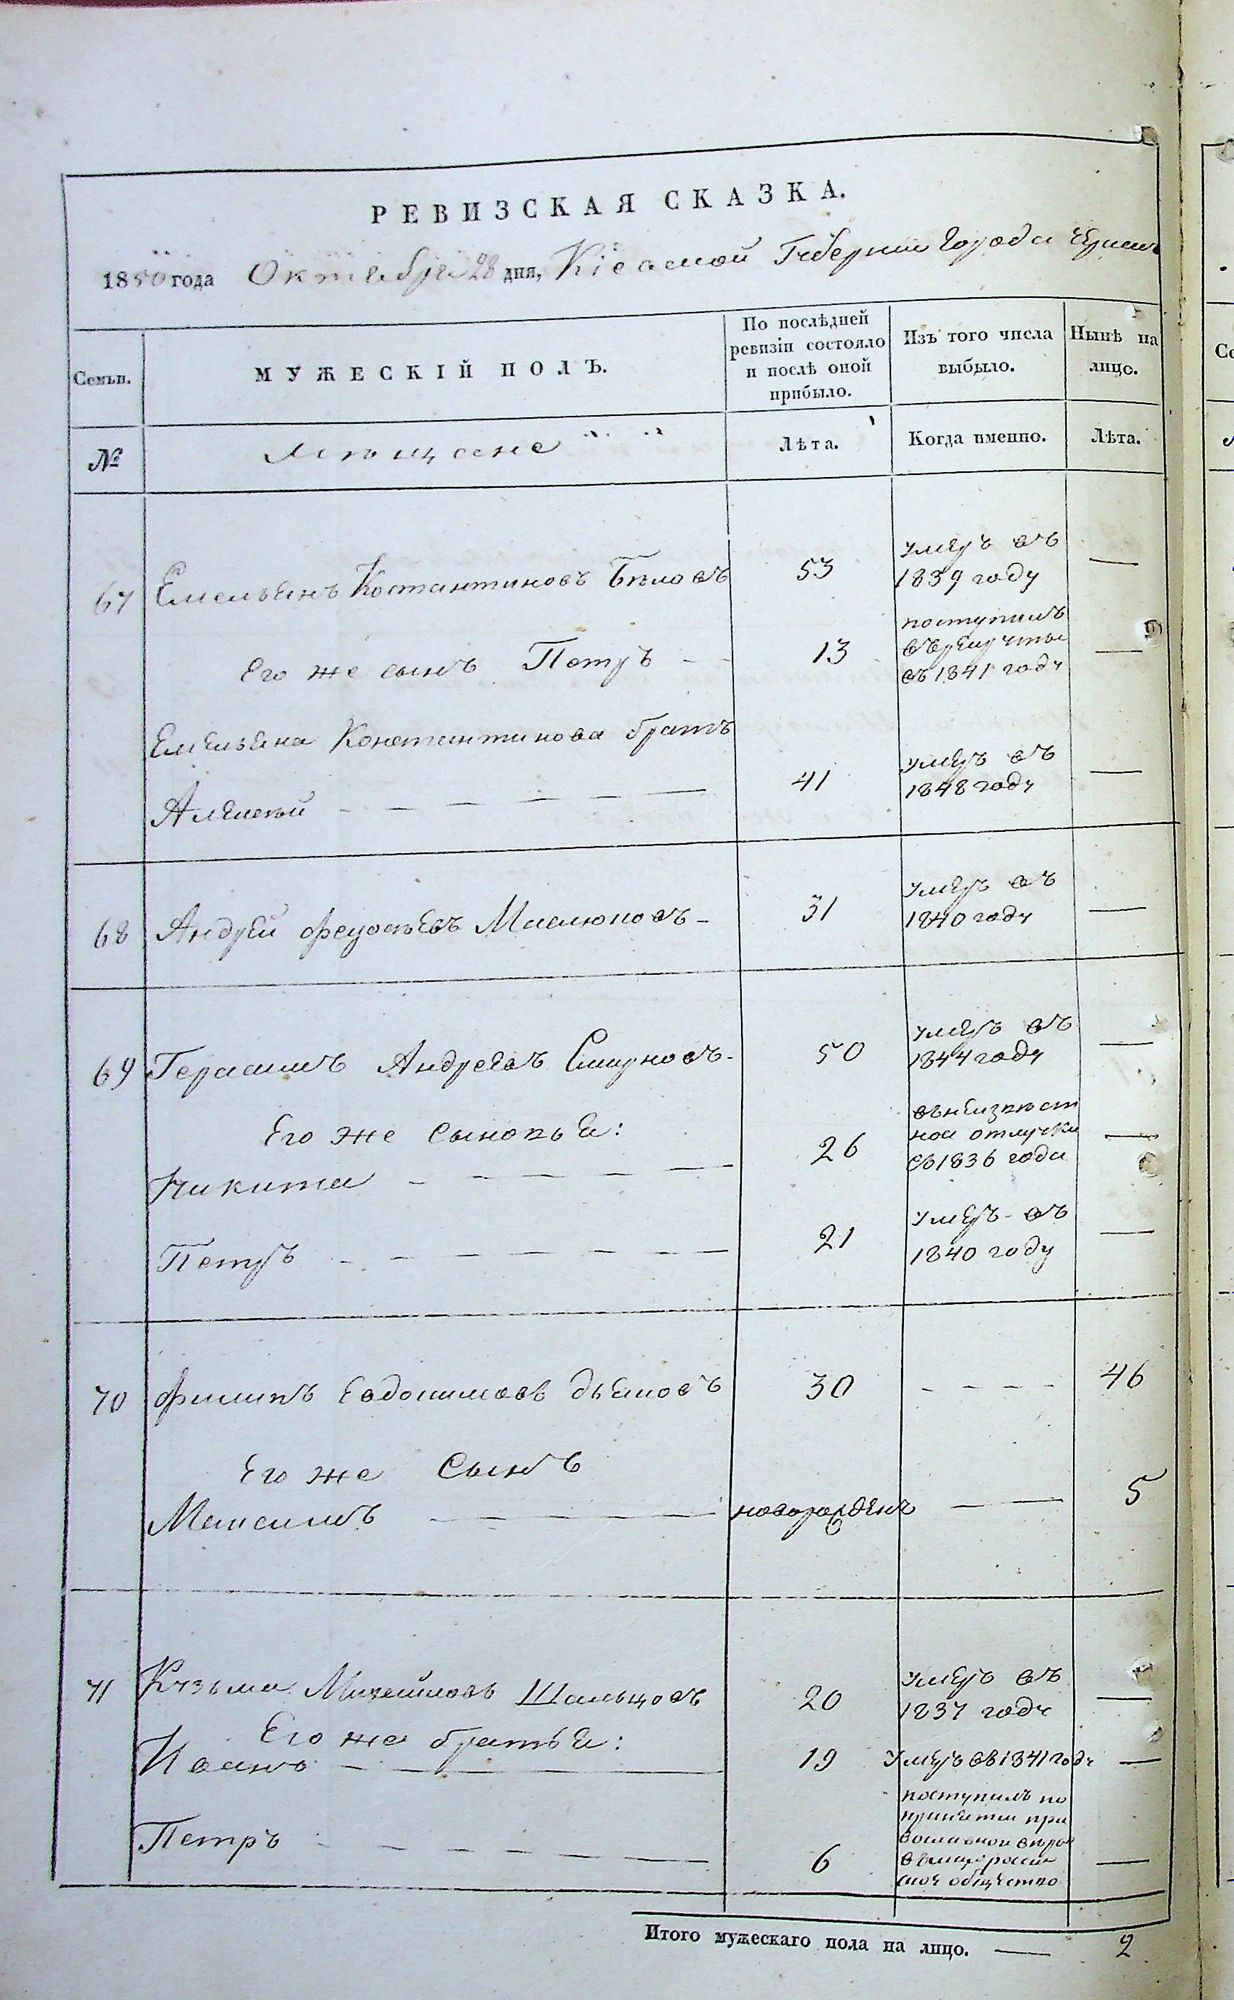 РЕВИЗСКАЯ СКАЗКА.
1850 года Октября 28 дня, Кіевской Губерніи Города
Семьи.
МУЖЕСКІЙ ПОЛЪ.
По послѣдней ревизіи состояло и послѣ оной прибыло.
Изъ того числа выбыло.
Нынѣ на лицо.
№
Мѣщане
Лѣта.
Когда именно.
Лѣта.
67 Емельянъ Костантиновъ Бѣловъ 53 умеръ въ 1839 году —
Его же сынъ Петръ — — 13 поступилъ въ рекруты въ 1841 году —
Емельяна Константинова братъ
Алексей — — — — — — 41 умеръ въ 1848 году —
68 Андрей Маслюковъ — 31 умеръ въ 1840 году —
69 Герасимъ Андреевъ Смирновъ — 50 умеръ въ 1844 году —
Его же сыновья:
Никита — — — — — 26 въ неизвѣстной отлучки съ 1836 года —
Петръ — — — — — — 21 умеръ въ 1840 году —
70 Филипъ Евдокимовъ 30 — — — — 46
Его же Сынъ
Максимъ — — — — новорожденъ — — — 5
71 Кузьма Михейловъ Шальцовъ 20 умеръ въ 1837 году —
Его же братья:
Иванъ — — 19 умеръ въ 1841 году —
Петръ — — — — — 6 поступилъ по принятии православной вѣры общество —
Итого мужескаго пола на лицо. — 2